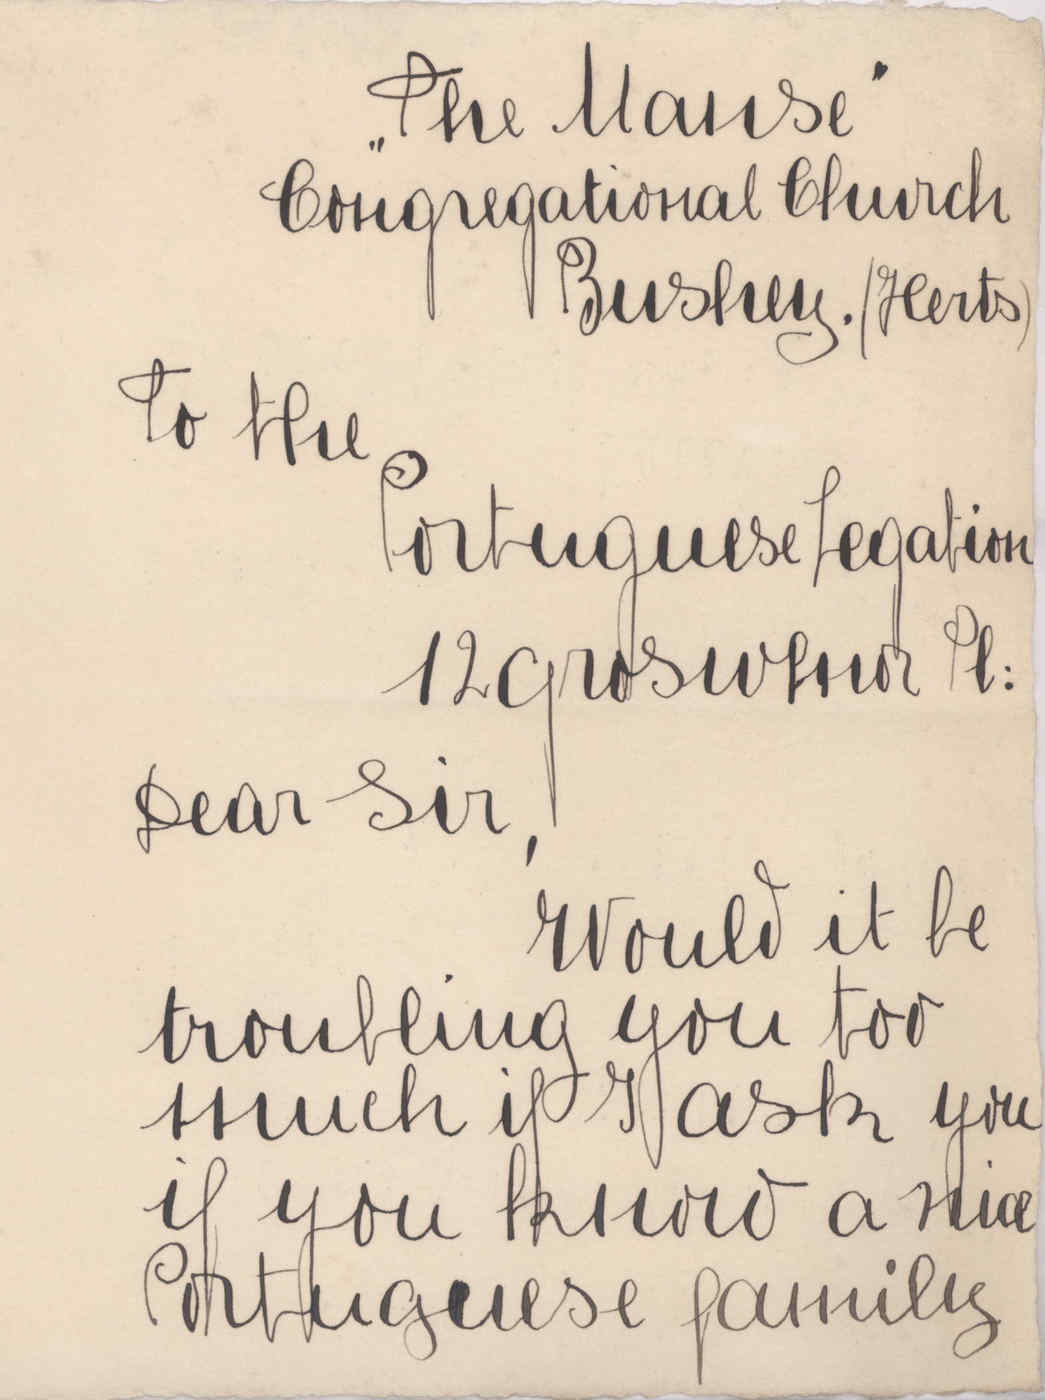 „The Manse"
Congregational Church
Bushey. (Herts)
To the
Portuguese Legation
12 Groswenor Pl:
Dear Sir,
Would it be
troubling you too
much if I ask you
if you know a nice
Portuguese family